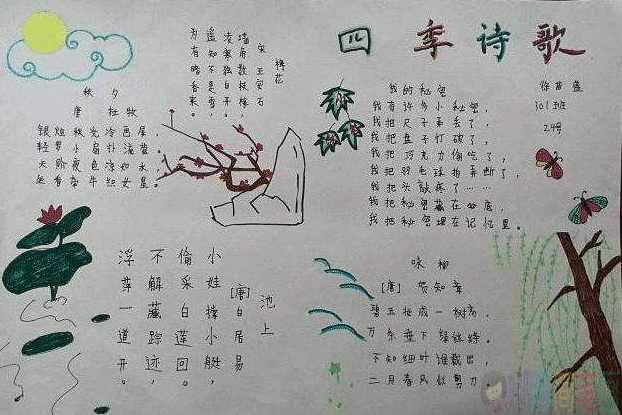 四季诗歌
徐
301班
24号
梅花
宋 王安石
墙角数枝梅,
凌寒独自开。
遥知不是雪,
为有暗香来。
秋夕
唐 杜牧
银烛秋光冷画屏,
轻罗小扇扑流萤。
天阶夜色凉如水,
坐看牵牛织女星。
我的秘密
我有许多小秘密,
我把尺子弄丢了,
我把盘子打破了,
我把巧克力偷吃了,
我把羽毛球拍弄断了,
我把头敲疼了……
我把秘密藏在心底,
我把秘密埋在记忆里。
池上
[唐]白居易
小娃撑小艇,
偷采白莲回。
不解藏踪迹,
浮萍一道开。
咏柳
[唐] 贺知章
碧玉妆成一树高,
万条垂下绿丝绦。
不知细叶谁裁出,
二月春风似剪刀。